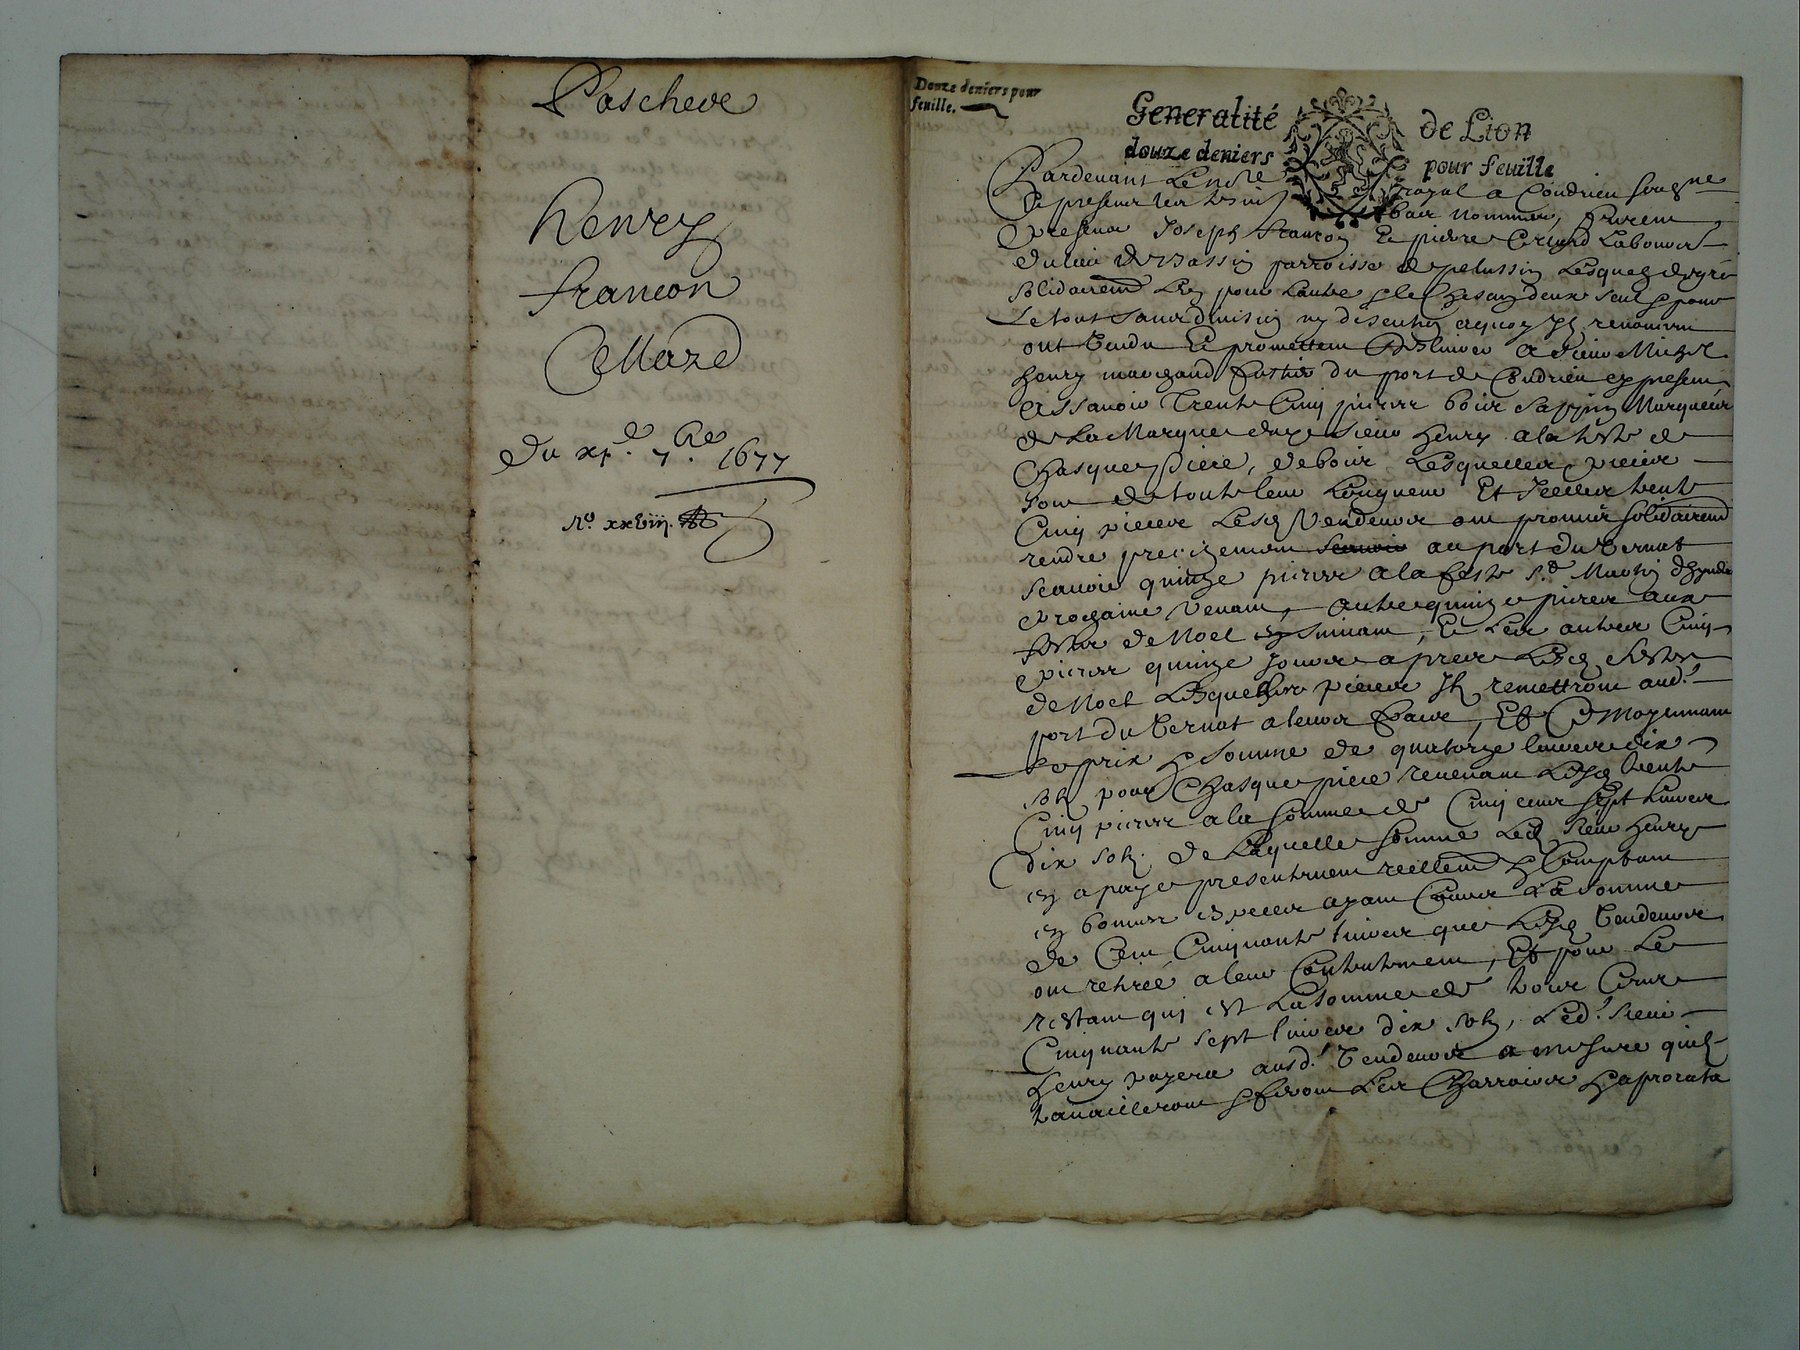 Pascheve
henry
francon
Mazé
Du xi.e 7.bre 1677
No. xxviij.
Douze deniers pour
feuille.
Generalité de Lion
douze deniers pour feuille
Pardevant Le nore royal a Condrieu soubgne
Et presens les tesm bas nommes, furent
presens Joseph francon Et pierre
du lieu de parroisse de pelussin Lesquels de gre
solidairemt L'un pour L'autre Et le chescung deux seul pour
Le tout sans division ny discution aquoy Ils renoncent
ont Vendu Et promettent Deslivrer A sieur Michel
henry marchand fustier du port de Condrieu cy present
Assavoir Trente Cinq pieces bois sappin Marquees
de La Marque dudt sieur henry a la teste de
Chasque piece, de bois Lesquelles pieces
sont de toute leur Longueur Et Icelles trente
Cinq pieces Lesd Vendeurs ont promis solidairemt
rendre precizement au port du Vernat
scavoir quinze pieces a la feste St Martin dhyver
prochaine Venant, autre quinze pieces aux
festes de Noel en suivant, Et Les autres Cinq
pieces quinze Jours apres Lesd festes
de Noel Lesquelles pieces Ils remettront aud.
port du Vernat a leurs frais, Et Ce Moyennant
Le prix Et somme de quatorze livres dix
sols pour Chasque piece revenant Lesd trente
Cinq pieces a la somme de Cinq cens sept Livres
dix sols. de Laquelle somme Led sieur henry
en a paye presentement reellemt Et Comptant
en bonnes especes ayant Cours La somme
de Cent Cinquante livres que Lesd Vendeurs
ont retiré a leur Contentement, Et pour Le
restant qui est La somme de trois Cens
Cinquante sept livres dix sols, Led. sieur
henry payera ausd. Vendeurs a mesure quils
travailleront Et feront Les Charrois Et a prorata